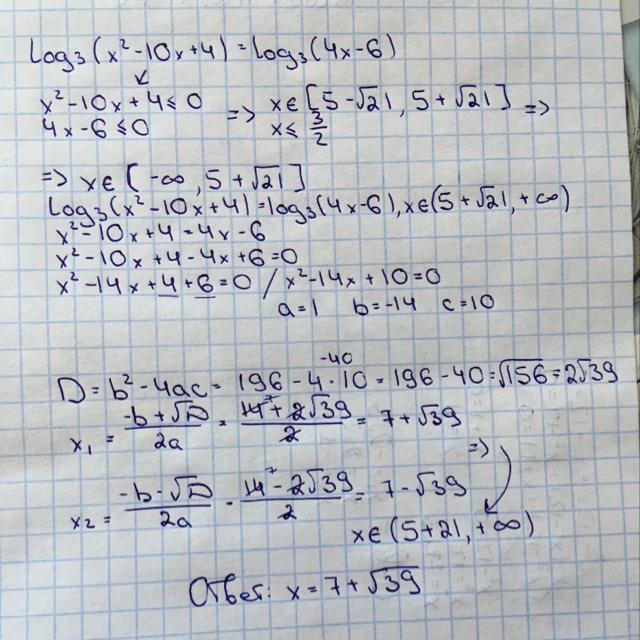 Log₃(x²-10x+4)=log₃(4x-6)
↙
x²-10x+4≤0 => x∈[5-√21, 5+√21] =>
4x-6≤0 x≤3/2
=> x∈[-∞, 5+√21]
Log₃(x²-10x+4)=log₃(4x-6), x∈(5+√21, +∞)
x²-10x+4=4x-6
x²-10x+4-4x+6=0
x²-14x+4+6=0 / x²-14x+10=0
a=1 b=-14 c=10
-40
D=b²-4ac=196-4·10=196-40=√156=2√39
x₁=(-b+√D)/2a=(14⁷+2√39)/2=7+√39
=>
x₂=(-b-√D)/2a=(14⁷-2√39)/2=7-√39
x∈(5+21, +∞)
Ответ: x=7+√39